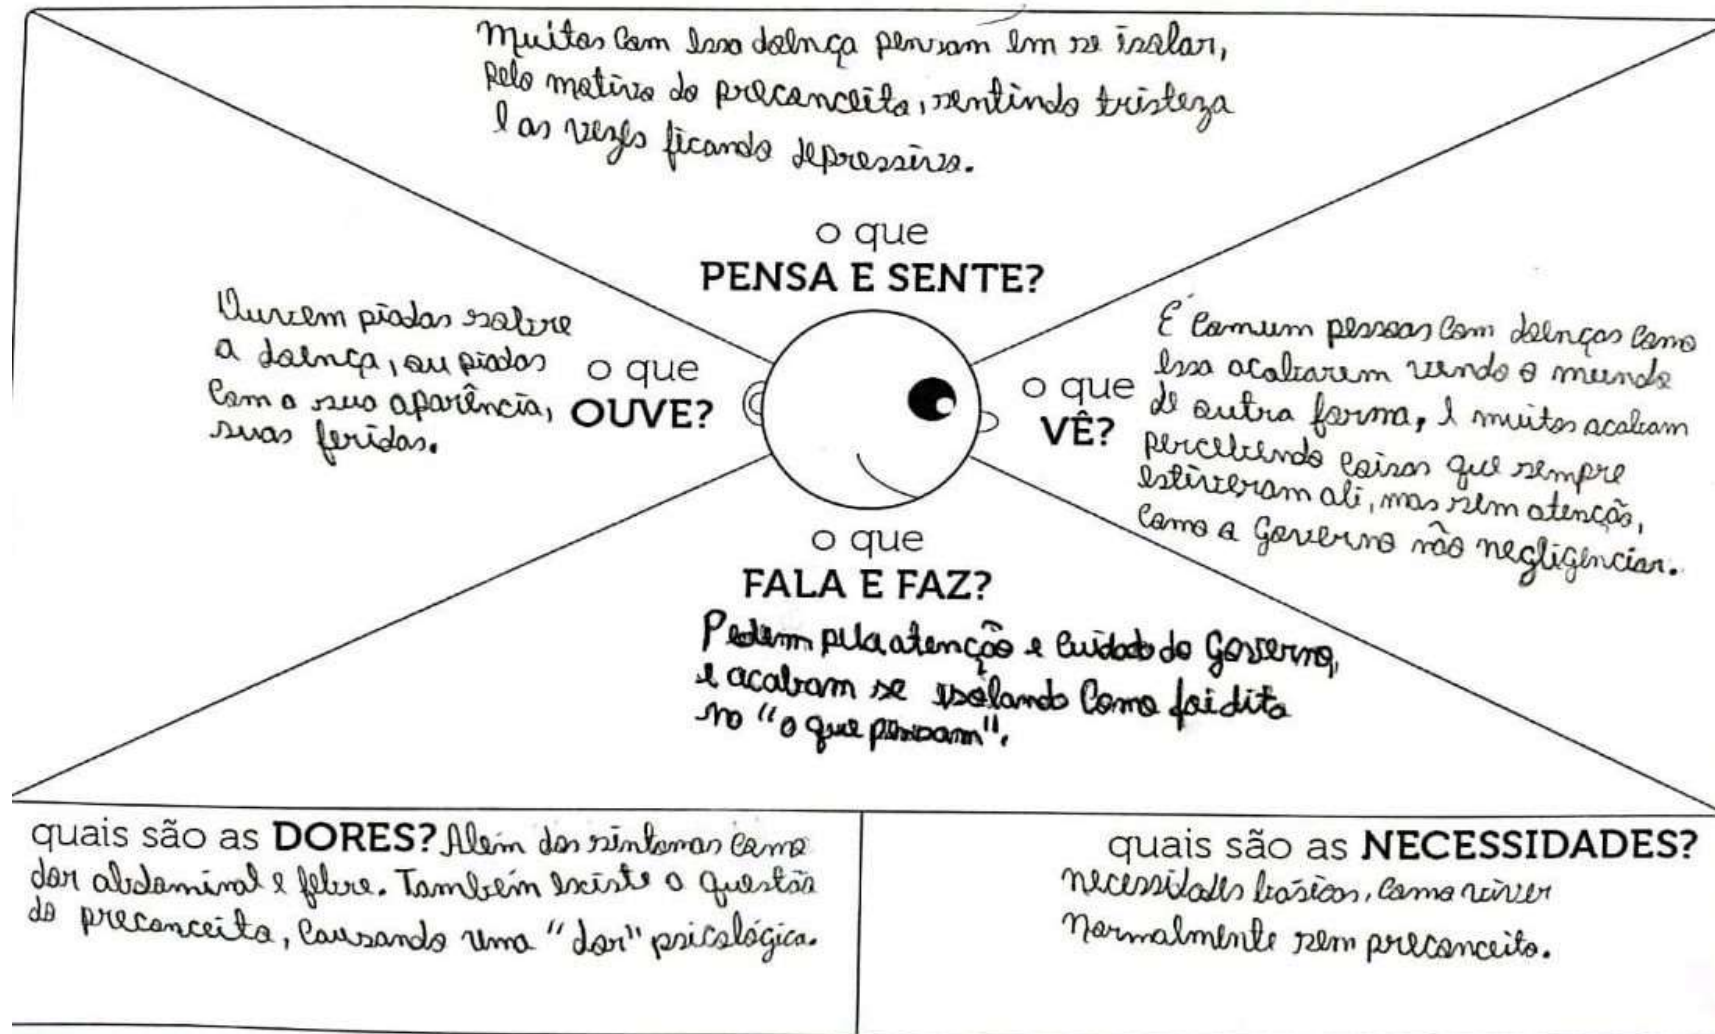 Muitos com essa doença pensam em se isolar,
pelo motivo do preconceito, sentindo tristeza
e as vezes ficando depressivo.
o que
PENSA E SENTE?
Ouvem piadas sobre
a doença, ou piadas
com a sua aparência,
suas feridas.
o que
OUVE?
o que
VÊ?
É comum pessoas com doenças como
essa acabarem vendo o mundo
de outra forma, e muitos acabam
percebendo coisas que sempre
estiveram ali, mas sem atenção,
como o Governo não negligenciar.
o que
FALA E FAZ?
Pedem pela atenção e cuidado do Governo,
e acabam se isolando como foi dito
no "o que pensam".
quais são as DORES? Além dos sintomas como
dor abdominal e febre. Também existe a questão
do preconceito, causando uma "dor" psicológica.
quais são as NECESSIDADES?
necessidades básicas, como viver
normalmente sem preconceito.